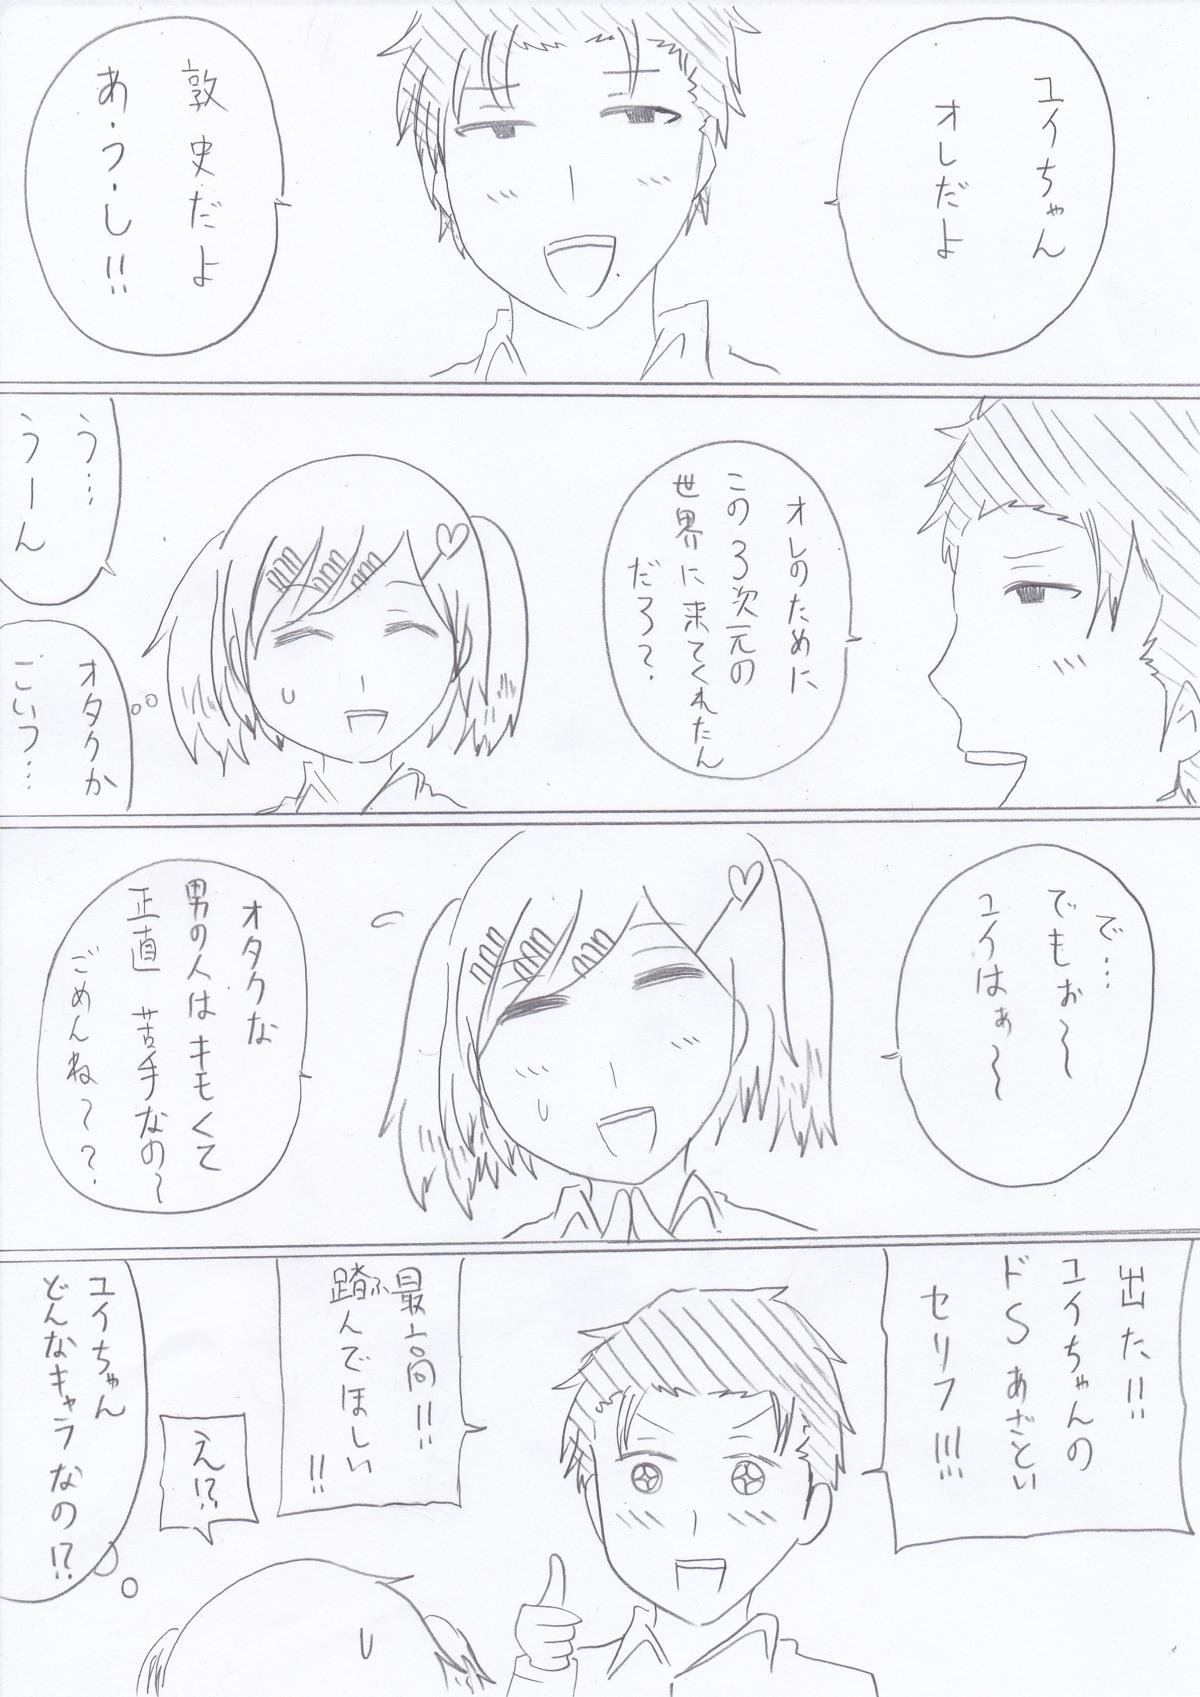 ユイちゃん
オレだよ
敦史だよ
あ・つ・し!!
オレのために
この3次元の
世界に来てくれたん
だろ?
う…
うーん
オタクか
こいつ…
で…
でもぉ〜
ユイはぁ〜
オタクな
男の人はキモくて
正直 苦手なの〜
ごめんね〜?
出た!!
ユイちゃんの
ドSあざとい
セリフ!!!
最高!!
踏んでほしい
ふ
!!
え!?
ユイちゃん
どんなキャラなの!?